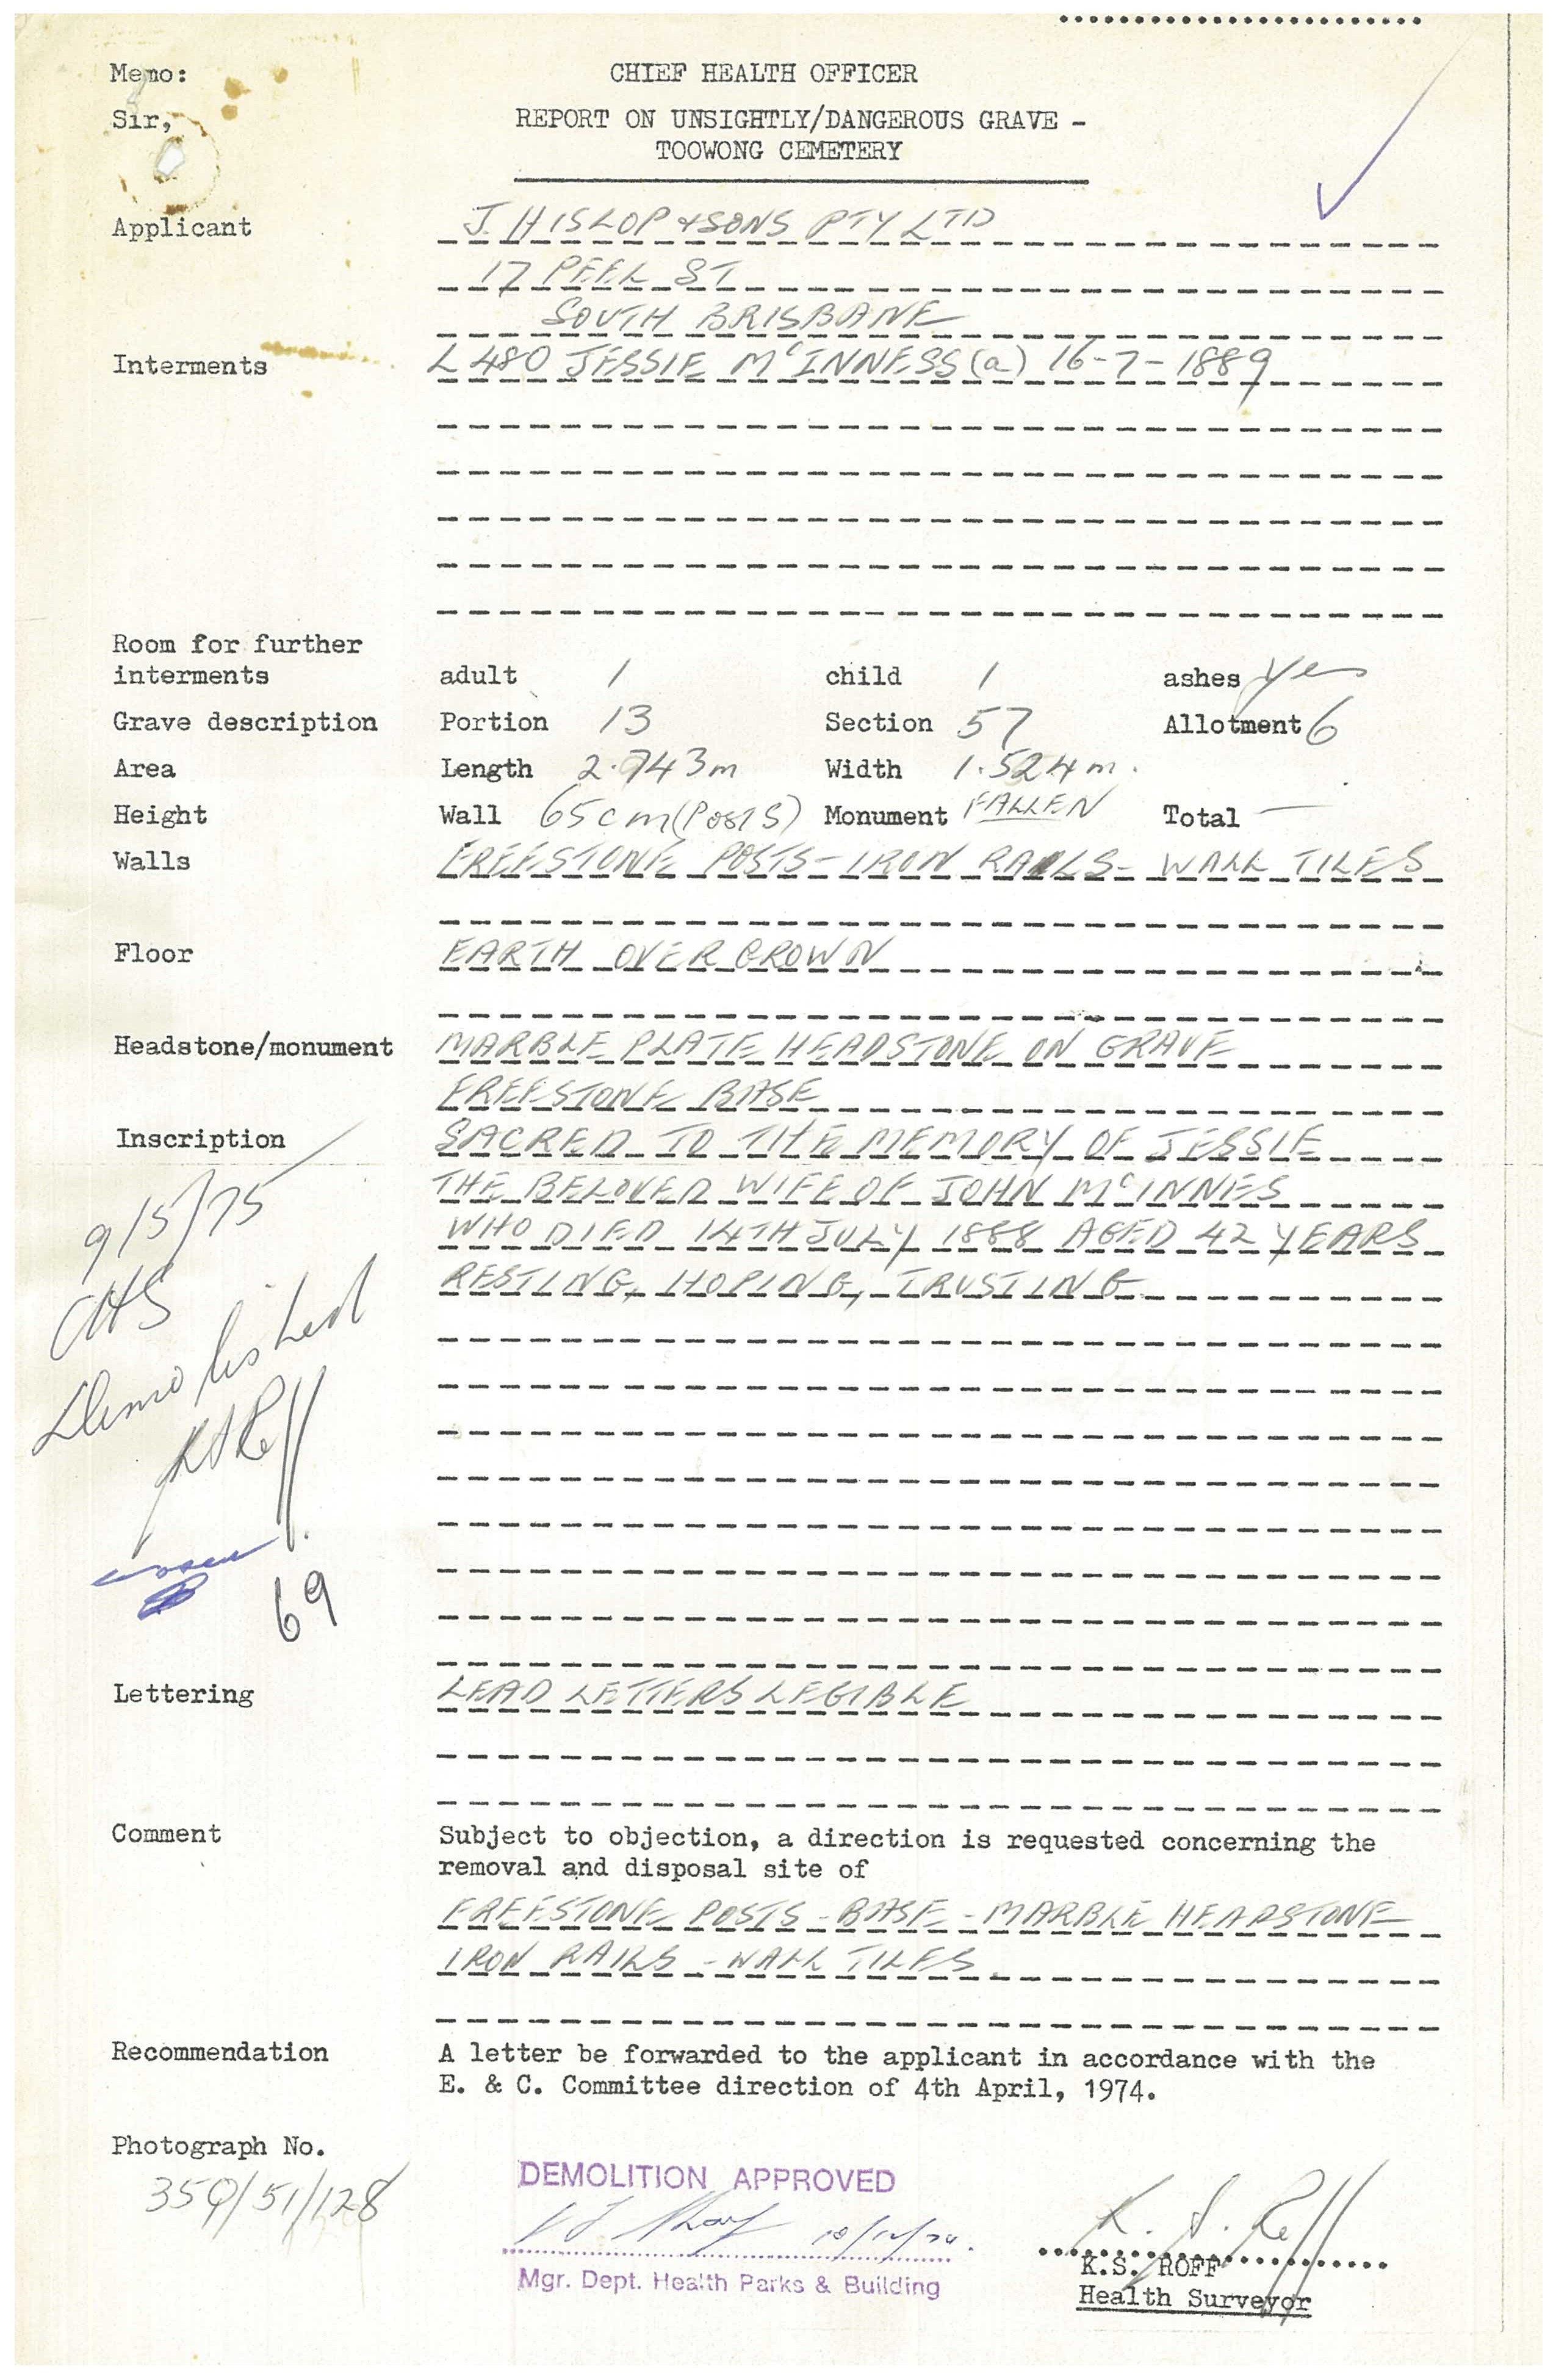 Memo: CHIEF HEALTH OFFICER
Sir, REPORT ON UNSIGHTLY/DANGEROUS GRAVE -
TOOWONG CEMETERY
Applicant J. HISLOP & SONS PTY LTD
17 PEEL ST
SOUTH BRISBANE
Interments L 480 JESSIE McINNESS (a) 16-7-1889
Room for further
interments adult 1 child 1 ashes Yes
Grave description Portion 13 Section 57 Allotment 6
Area Length 2.743m Width 1.524m.
Height Wall 65cm (POSTS) Monument FALLEN Total —
Walls FREESTONE POSTS - IRON RAILS - WALL TILES
Floor EARTH OVERGROWN
Headstone/monument MARBLE PLATE HEADSTONE ON GRAVE
FREESTONE BASE
Inscription SACRED TO THE MEMORY OF JESSIE
THE BELOVED WIFE OF JOHN McINNES
WHO DIED 14TH JULY 1888 AGED 42 YEARS
RESTING, HOPING, TRUSTING
9/5/75
CHS
Demolished
KSRoff
69
Lettering LEAD LETTERS LEGIBLE
Comment Subject to objection, a direction is requested concerning the
removal and disposal site of
FREESTONE POSTS - BASE - MARBLE HEADSTONE
IRON RAILS - WALL TILES
Recommendation A letter be forwarded to the applicant in accordance with the
E. & C. Committee direction of 4th April, 1974.
Photograph No.
359/51/128
DEMOLITION APPROVED
10/12/74.
Mgr. Dept. Health Parks & Building
K. S. Roff
K.S. ROFF
Health Surveyor